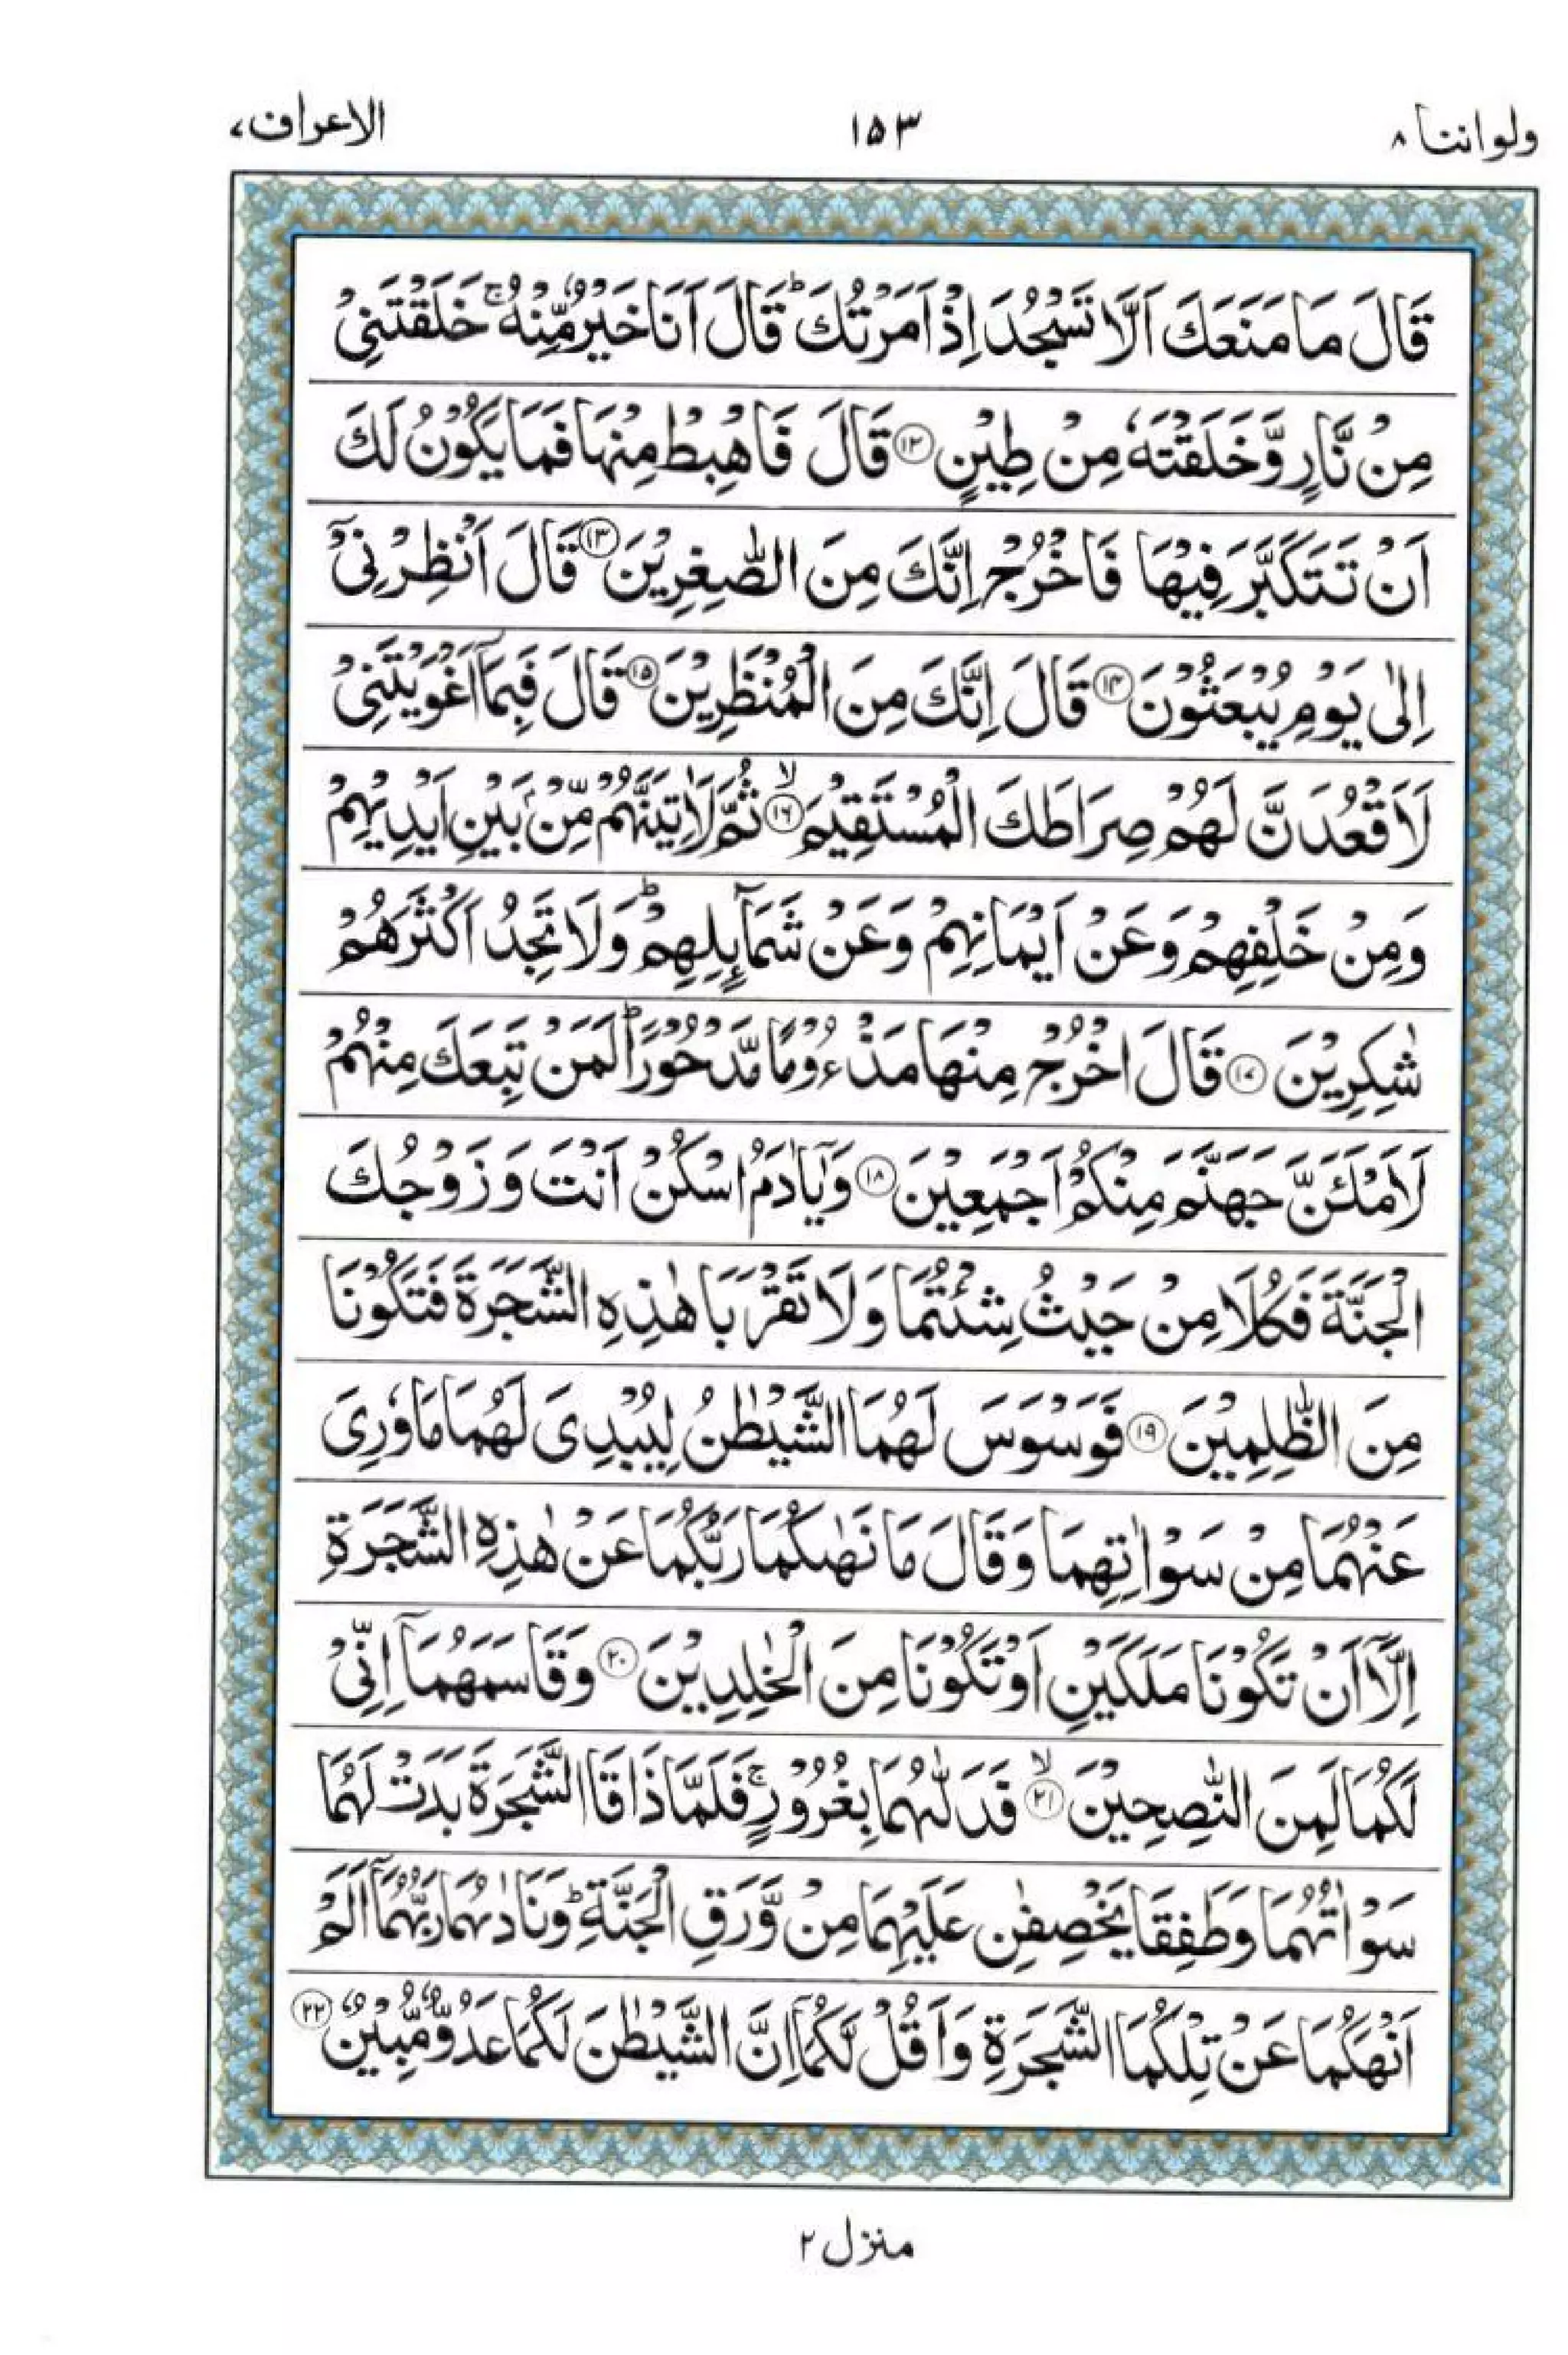 ولواننا ۸
۱۵۳
الاعراف ۷
قَالَ مَا مَنَعَكَ اَلَّا تَسْجُدَ اِذْ اَمَرْتُكَ ؕ قَالَ اَنَا خَيْرٌ مِّنْهُ ۚ خَلَقْتَنِىْ
مِنْ نَّارٍ وَّخَلَقْتَهٗ مِنْ طِيْنٍ ۱۲ قَالَ فَاهْبِطْ مِنْهَا فَمَا يَكُوْنُ لَكَ
اَنْ تَتَكَبَّرَ فِيْهَا فَاخْرُجْ اِنَّكَ مِنَ الصّٰغِرِيْنَ ۱۳ قَالَ اَنْظِرْنِىْٓ
اِلٰى يَوْمِ يُبْعَثُوْنَ ۱۴ قَالَ اِنَّكَ مِنَ الْمُنْظَرِيْنَ ۱۵ قَالَ فَبِمَاۤ اَغْوَيْتَنِىْ
لَاَقْعُدَنَّ لَهُمْ صِرَاطَكَ الْمُسْتَقِيْمَ ۙ ۱۶ ثُمَّ لَاٰتِيَنَّهُمْ مِّنْۢ بَيْنِ اَيْدِيْهِمْ
وَمِنْ خَلْفِهِمْ وَعَنْ اَيْمَانِهِمْ وَعَنْ شَمَآٮِٕلِهِمْ ؕ وَلَا تَجِدُ اَكْثَرَهُمْ
شٰكِرِيْنَ ۱۷ قَالَ اخْرُجْ مِنْهَا مَذْءُوْمًا مَّدْحُوْرًا ؕ لَمَنْ تَبِعَكَ مِنْهُمْ
لَاَمْلَئَنَّ جَهَنَّمَ مِنْكُمْ اَجْمَعِيْنَ ۱۸ وَيٰۤاٰدَمُ اسْكُنْ اَنْتَ وَزَوْجُكَ
الْجَنَّةَ فَكُلَا مِنْ حَيْثُ شِئْتُمَا وَلَا تَقْرَبَا هٰذِهِ الشَّجَرَةَ فَتَكُوْنَا
مِنَ الظّٰلِمِيْنَ ۱۹ فَوَسْوَسَ لَهُمَا الشَّيْطٰنُ لِيُبْدِىَ لَهُمَا مَا وٗرِىَ
عَنْهُمَا مِنْ سَوْاٰتِهِمَا وَقَالَ مَا نَهٰٮكُمَا رَبُّكُمَا عَنْ هٰذِهِ الشَّجَرَةِ
اِلَّاۤ اَنْ تَكُوْنَا مَلَكَيْنِ اَوْ تَكُوْنَا مِنَ الْخٰلِدِيْنَ ۲۰ وَقَاسَمَهُمَاۤ اِنِّىْ
لَكُمَا لَمِنَ النّٰصِحِيْنَ ۙ ۲۱ فَدَلّٰٮهُمَا بِغُرُوْرٍ ۚ فَلَمَّا ذَاقَا الشَّجَرَةَ بَدَتْ لَهُمَا
سَوْاٰتُهُمَا وَطَفِقَا يَخْصِفٰنِ عَلَيْهِمَا مِنْ وَّرَقِ الْجَنَّةِ ؕ وَنَادٰٮهُمَا رَبُّهُمَاۤ اَلَمْ
اَنْهَكُمَا عَنْ تِلْكُمَا الشَّجَرَةِ وَاَقُلْ لَّكُمَاۤ اِنَّ الشَّيْطٰنَ لَكُمَا عَدُوٌّ مُّبِيْنٌ ۲۲
منزل ۲